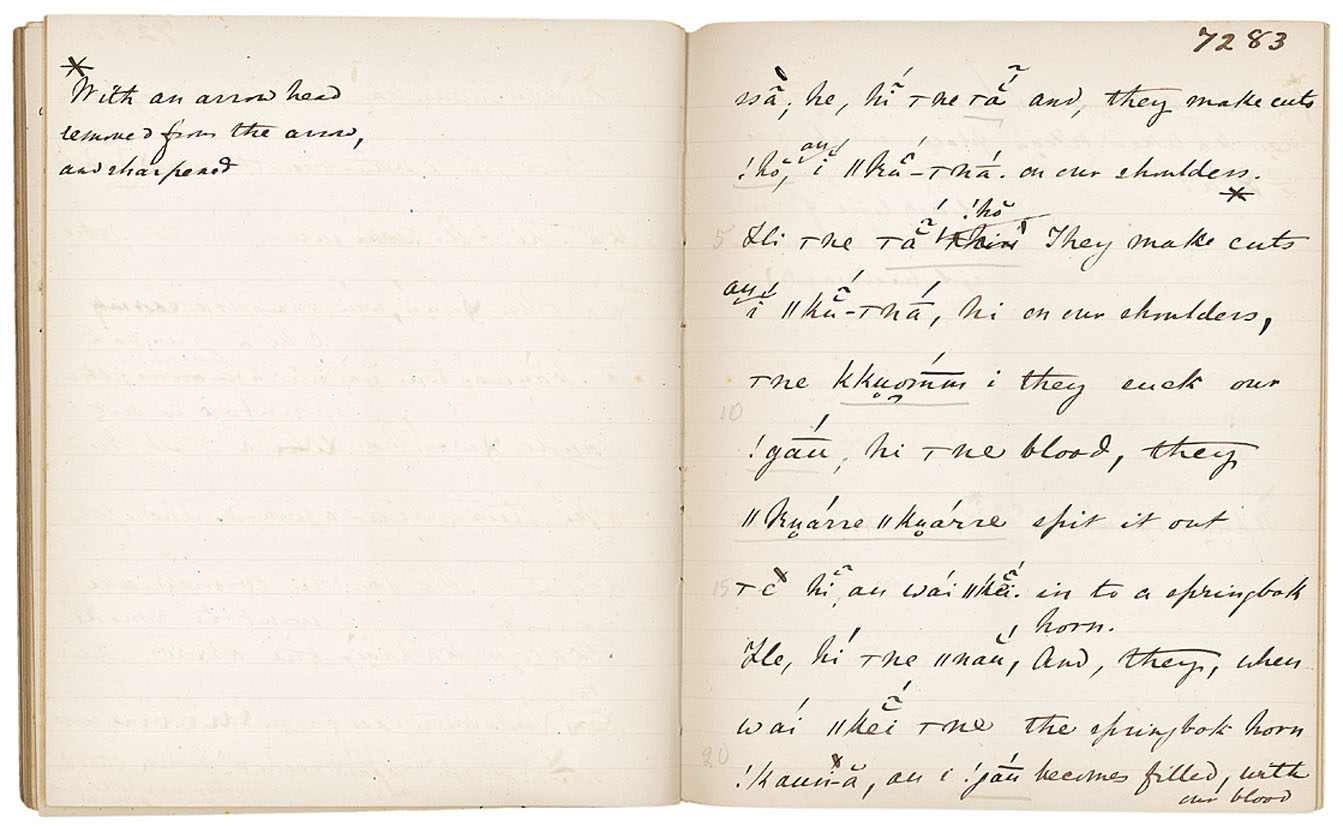 *
With an arrow head
removed from the arrow,
and sharpened
7283
ssā̀; he, hĭ́ ⊤ne ⊤ā̃́ and, they make cuts
!hŏ, au ĭ́ ǁkŭ́-⊤ná. on our shoulders.
*
5 Hi ⊤ne ⊤ā̃́ !hŏ They make cuts
au ĭ́ ǁkŭ̃́-⊤nā́, hi on our shoulders,
⊤ne kk̥u̯omm̄́ i they suck our
!gāū́, hi ⊤ne blood, they
10
ǁku̥árre ǁku̥árre spit it out
15 ⊤ĕ hĭ̃, au wái ǁkĕ̃ĭ́. in to a springbok
horn.
He, hĭ́ ⊤ne ǁnaŭ́, And, they, when
wái ǁkĕ̃́i ⊤ne the springbok horn
20
!kauïn-ă, au i !gāū́ becomes filled, with
our blood